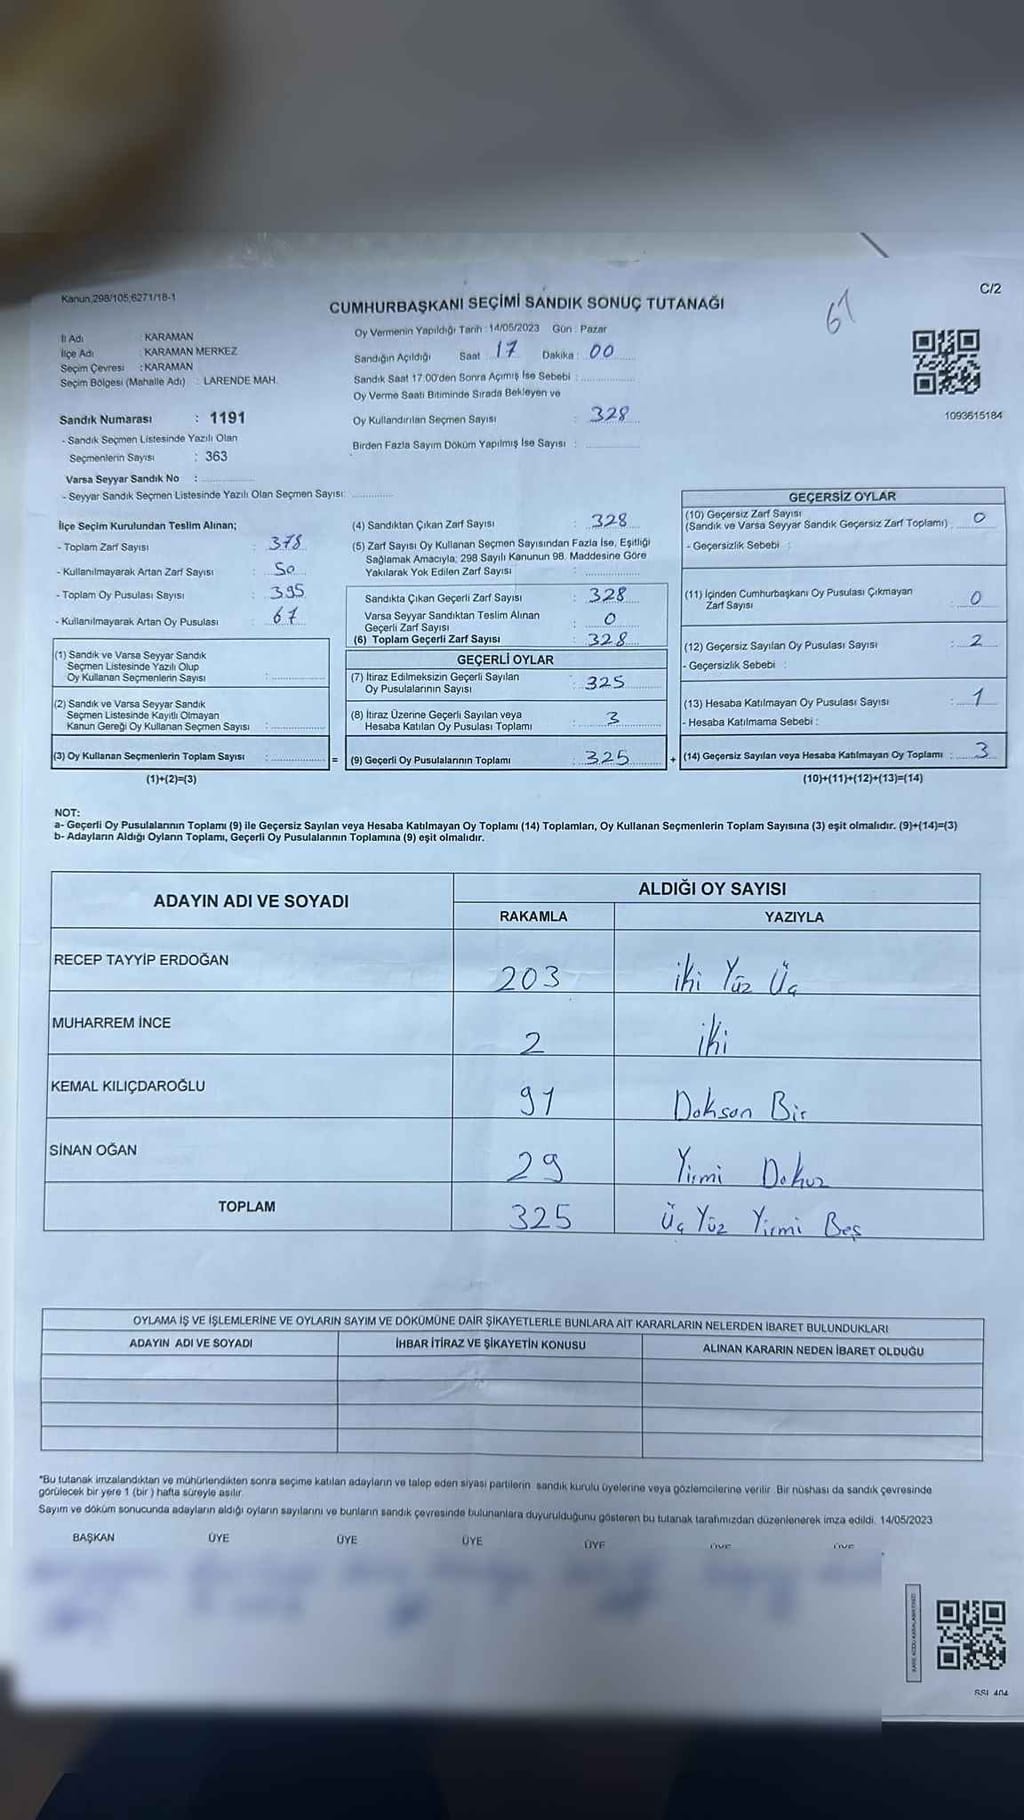 Kanun,298/105;6271/18-1
C/2
CUMHURBAŞKANI SEÇİMİ SANDIK SONUÇ TUTANAĞI
67
İl Adı : KARAMAN
İlçe Adı : KARAMAN MERKEZ
Seçim Çevresi : KARAMAN
Seçim Bölgesi (Mahalle Adı) : LARENDE MAH.
Sandık Numarası : 1191
- Sandık Seçmen Listesinde Yazılı Olan
Seçmenlerin Sayısı : 363
Varsa Seyyar Sandık No :
- Seyyar Sandık Seçmen Listesinde Yazılı Olan Seçmen Sayısı:
Oy Vermenin Yapıldığı Tarih : 14/05/2023 Gün : Pazar
Sandığın Açıldığı Saat 17 Dakika : 00
Sandık Saat 17:00'den Sonra Açmış İse Sebebi :
Oy Verme Saati Bitiminde Sırada Bekleyen ve
Oy Kullandırılan Seçmen Sayısı : 328
Birden Fazla Sayım Döküm Yapılmış İse Sayısı :
1093615184
İlçe Seçim Kurulundan Teslim Alınan;
- Toplam Zarf Sayısı : 378
- Kullanılmayarak Artan Zarf Sayısı : 50
- Toplam Oy Pusulası Sayısı : 395
- Kullanılmayarak Artan Oy Pusulası : 67
(1) Sandık ve Varsa Seyyar Sandık
Seçmen Listesinde Yazılı Olup
Oy Kullanan Seçmenlerin Sayısı :
(2) Sandık ve Varsa Seyyar Sandık
Seçmen Listesinde Kayıtlı Olmayan
Kanun Gereği Oy Kullanan Seçmen Sayısı :
(3) Oy Kullanan Seçmenlerin Toplam Sayısı :
(1)+(2)=(3)
(4) Sandıktan Çıkan Zarf Sayısı : 328
(5) Zarf Sayısı Oy Kullanan Seçmen Sayısından Fazla İse, Eşitliği
Sağlamak Amacıyla; 298 Sayılı Kanunun 98. Maddesine Göre
Yakılarak Yok Edilen Zarf Sayısı :
Sandıkta Çıkan Geçerli Zarf Sayısı : 328
Varsa Seyyar Sandıktan Teslim Alınan
Geçerli Zarf Sayısı : 0
(6) Toplam Geçerli Zarf Sayısı : 328
GEÇERLİ OYLAR
(7) İtiraz Edilmeksizin Geçerli Sayılan
Oy Pusulalarının Sayısı : 325
(8) İtiraz Üzerine Geçerli Sayılan veya
Hesaba Katılan Oy Pusulası Toplamı : 3
= (9) Geçerli Oy Pusulalarının Toplamı : 325
GEÇERSİZ OYLAR
(10) Geçersiz Zarf Sayısı
(Sandık ve Varsa Seyyar Sandık Geçersiz Zarf Toplamı) : 0
- Geçersizlik Sebebi :
(11) İçinden Cumhurbaşkanı Oy Pusulası Çıkmayan
Zarf Sayısı : 0
(12) Geçersiz Sayılan Oy Pusulası Sayısı : 2
- Geçersizlik Sebebi :
(13) Hesaba Katılmayan Oy Pusulası Sayısı : 1
- Hesaba Katılmama Sebebi :
+ (14) Geçersiz Sayılan veya Hesaba Katılmayan Oy Toplamı : 3
(10)+(11)+(12)+(13)=(14)
NOT:
a- Geçerli Oy Pusulalarının Toplamı (9) ile Geçersiz Sayılan veya Hesaba Katılmayan Oy Toplamı (14) Toplamları, Oy Kullanan Seçmenlerin Toplam Sayısına (3) eşit olmalıdır. (9)+(14)=(3)
b- Adayların Aldığı Oyların Toplamı, Geçerli Oy Pusulalarının Toplamına (9) eşit olmalıdır.
ADAYIN ADI VE SOYADI ALDIĞI OY SAYISI
RAKAMLA YAZIYLA
RECEP TAYYİP ERDOĞAN 203 iki Yüz Üç
MUHARREM İNCE 2 iki
KEMAL KILIÇDAROĞLU 91 Doksan Bir
SİNAN OĞAN 29 Yirmi Dokuz
TOPLAM 325 Üç Yüz Yirmi Beş
OYLAMA İŞ VE İŞLEMLERİNE VE OYLARIN SAYIM VE DÖKÜMÜNE DAİR ŞİKAYETLERLE BUNLARA AİT KARARLARIN NELERDEN İBARET BULUNDUKLARI
ADAYIN ADI VE SOYADI İHBAR İTİRAZ VE ŞİKAYETİN KONUSU ALINAN KARARIN NEDEN İBARET OLDUĞU
*Bu tutanak imzalandıktan ve mühürlendikten sonra seçime katılan adayların ve talep eden siyasi partilerin sandık kurulu üyelerine veya gözlemcilerine verilir. Bir nüshası da sandık çevresinde
görülecek bir yere 1 (bir) hafta süreyle asılır.
Sayım ve döküm sonucunda adayların aldığı oyların sayılarını ve bunların sandık çevresinde bulunanlara duyurulduğunu gösteren bu tutanak tarafımızdan düzenlenerek imza edildi. 14/05/2023
BAŞKAN ÜYE ÜYE ÜYE ÜYE ÜYE ÜYE
SSI 404